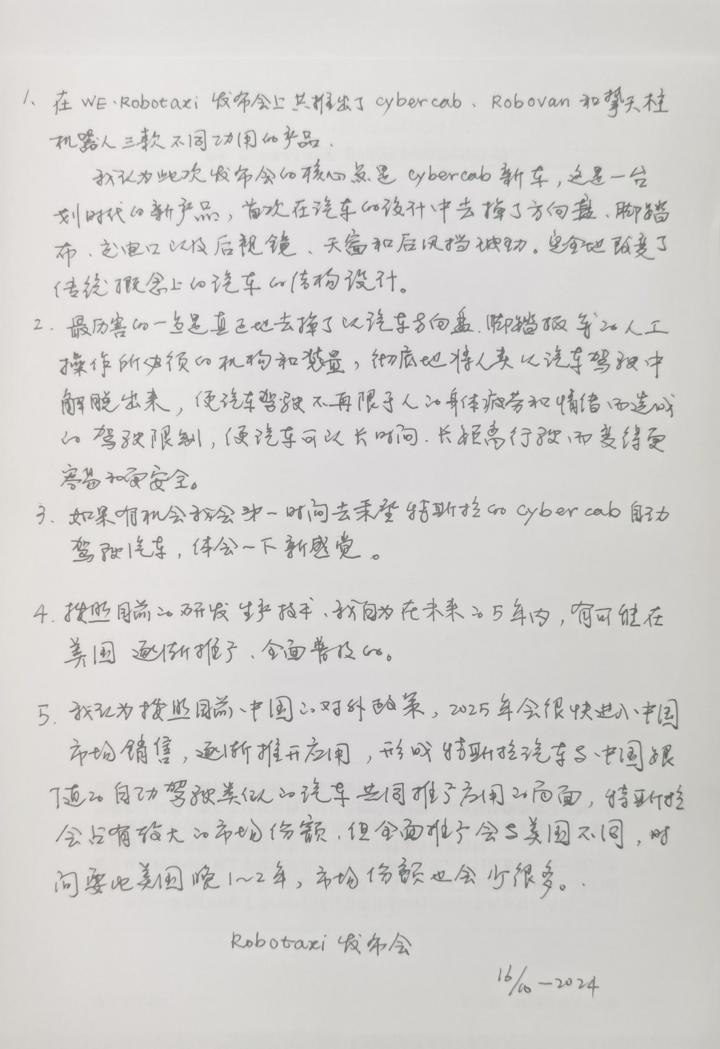 1、在 WE·Robotaxi 发布会上共推出了 cybercab、Robovan 和擎天柱
机器人三款不同功用的产品.
我认为此次发布会的核心点是 cybercab 新车，这是一台
划时代的新产品，首次在汽车的设计中去掉了方向盘、脚踏
布、充电口以及后视镜、天窗和后风挡玻璃。完全地改变了
传统概念上的汽车的结构设计。
2、最厉害的一点是真正地去掉了以汽车方向盘、脚踏板等的人工
操作所必须的机构和装置，彻底地将人类从汽车驾驶中
解脱出来，使汽车驾驶不再限于人的身体疲劳和情绪而造成
的驾驶限制，使汽车可以长时间、长距离行驶而变得更
容易和更安全。
3、如果有机会我会第一时间去乘坐特斯拉的 cybercab 自动
驾驶汽车，体会一下新感觉。
4、按照目前的研发生产技术、我自为在未来的5年内，有可能在
美国逐渐推广、全面普及的。
5、我认为按照目前、中国的对外政策，2025年会很快进入中国
市场销售，逐渐推开应用，形成特斯拉汽车与中国很
的自动驾驶类似的汽车共同推广应用的局面，特斯拉
会占有较大的市场份额，但全面推广会与美国不同，时
间要比美国晚1~2年，市场份额也会少很多。
Robotaxi 发布会
16/10—2024